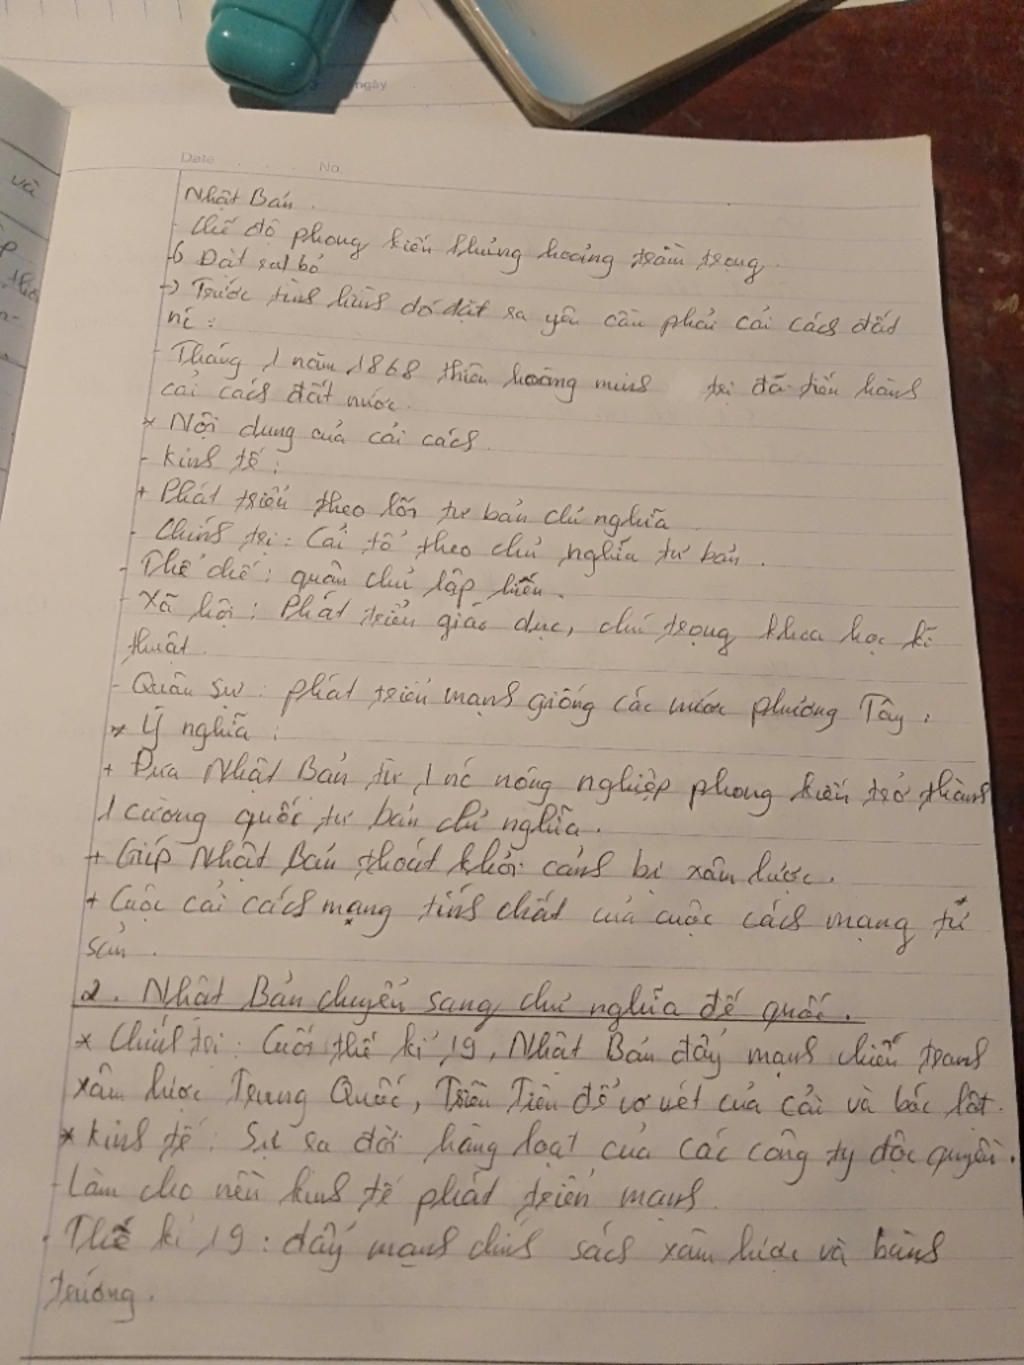 ngày
Date No.
và
Nhật Bản.
- Chế độ phong kiến khủng hoảng trầm trọng.
→ Đặt ra
→ Trước tình hình đó đặt ra yêu cầu phải cải cách đất
nc:
- Tháng 1 năm 1868 thiên hoàng minh trị đã tiến hành
cải cách đất nước.
* Nội dung của cải cách.
- Kinh tế:
+ Phát triển theo lối tư bản chủ nghĩa
- Chính trị: Cải tổ theo chủ nghĩa tư bản.
- Thể chế: quân chủ lập hiến.
- Xã hội: Phát triển giáo dục, chú trọng khoa học kĩ
thuật.
- Quân sự: phát triển mạnh giống các nước phương Tây.
* Ý nghĩa:
+ Đưa Nhật Bản từ 1 nc nông nghiệp phong kiến trở thành
1 cường quốc tư bản chủ nghĩa.
+ Giúp Nhật Bản thoát khỏi cảnh bị xâm lược.
+ Cuộc cải cách mạng tính chất của cuộc cách mạng tư
sản.
2. Nhật Bản chuyển sang chủ nghĩa đế quốc.
* Chính trị: Cuối thế kỉ 19, Nhật Bản đẩy mạnh chiến tranh
xâm lược Trung Quốc, Triều Tiên để vơ vét của cải và bóc lột.
* Kinh tế: Sự ra đời hàng loạt của các công ty độc quyền.
- Làm cho nền kinh tế phát triển mạnh.
- Thế kỉ 19: đẩy mạnh chính sách xâm lược và bành
trướng.